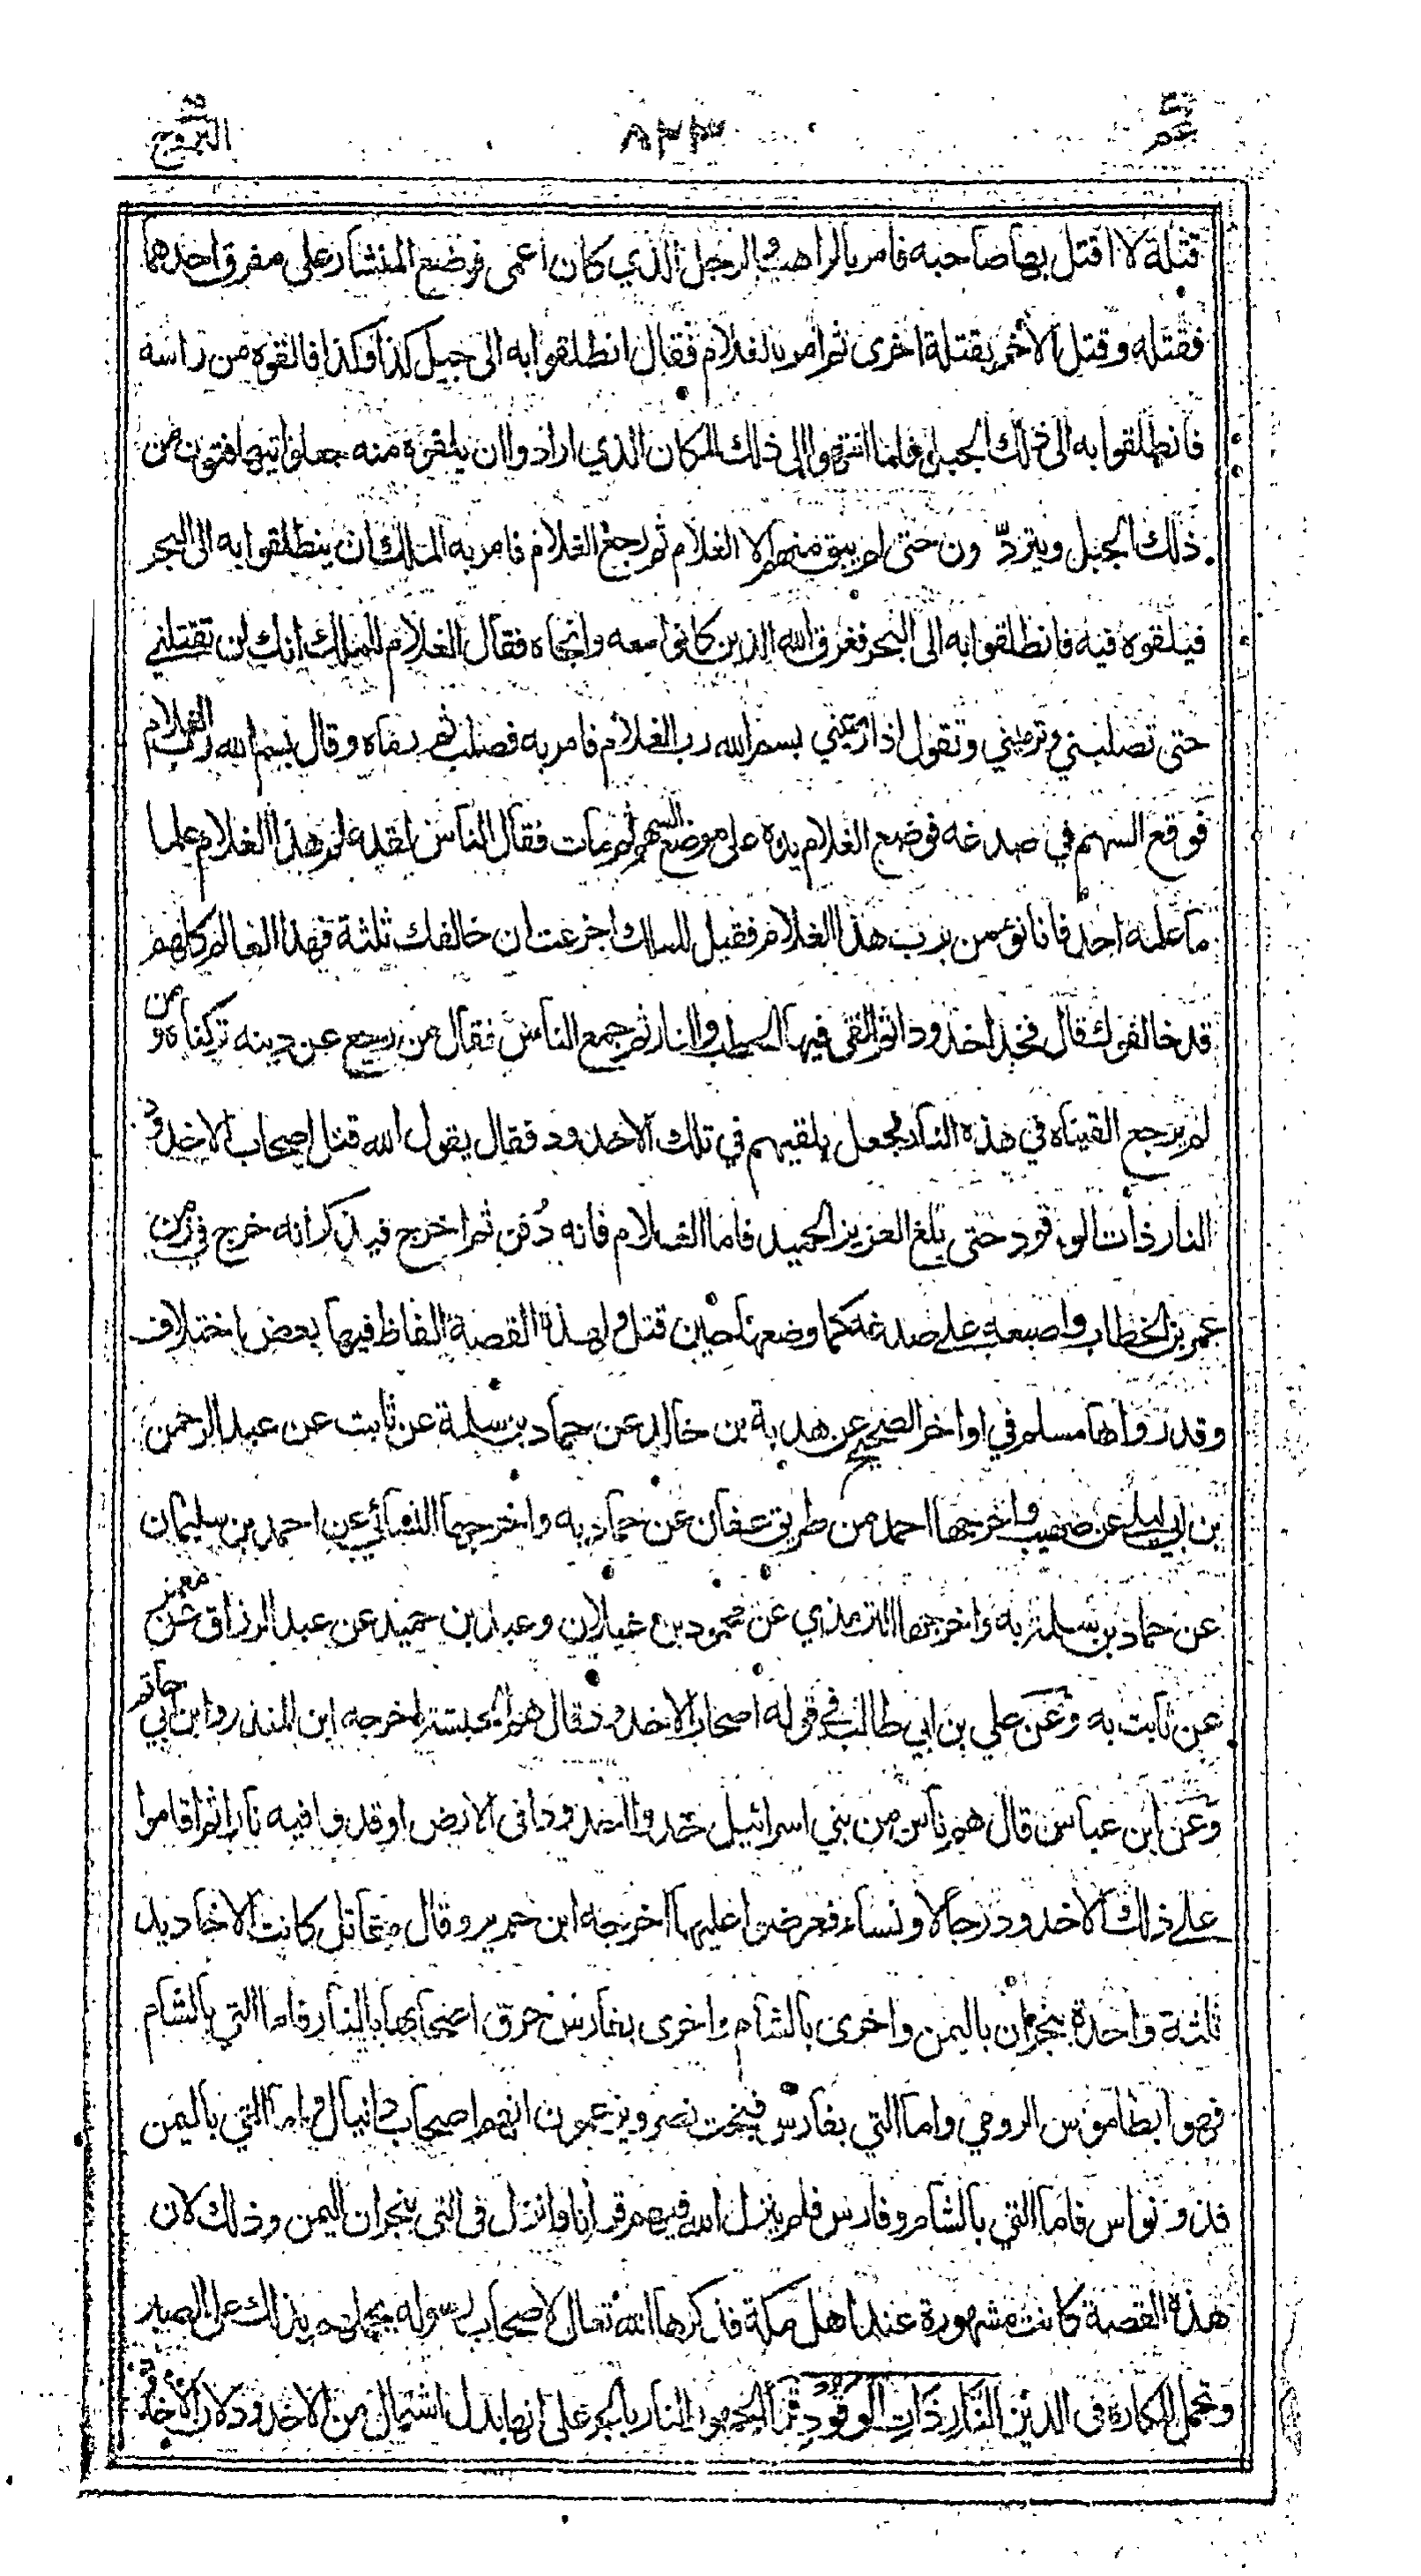 عم ٨٢٣ البروج
قتلة لا اقتل بها صاحبه فامر بالراهب والرجل الذي كان اعمى فوضع المنشار على مفرق احدهما
فقتله وقتل الآخر بقتلة اخرى ثم امر بالغلام فقال انطلقوا به الى جبل كذا وكذا فالقوه من راسه
فانطلقوا به الى ذلك الجبل فلما انتهوا الى ذلك المكان الذي ارادوا ان يلقوه منه جعلوا يتهافتون من
ذلك الجبل ويتردّون حتى لم يبق منهم الا الغلام ثم رجع الغلام فامر به الملك ان ينطلقوا به الى البحر
فيلقوه فيه فانطلقوا به الى البحر فغرق الله الذين كانوا معه وانجاه فقال الغلام للملك انك لن تقتلني
حتى تصلبني وترميني وتقول اذا رميتني بسم الله رب الغلام فامر به فصلب ثم رماه وقال بسم الله رب الغلام
فوقع السهم في صدغه فوضع الغلام يده على موضع السهم ثم مات فقال الناس لقد علم هذا الغلام علما
ما علمه احد فانا نؤمن برب هذا الغلام فقيل للملك اجزعت ان خالفك ثلثة فهذا العالم كلهم
قد خالفوك قال فخد اخدودا ثم القى فيها الحطب والنار ثم جمع الناس فقال من رجع عن دينه تركناه ومن
لم يرجع القيناه في هذه النار فجعل يلقيهم في تلك الاخدود فقال يقول الله قتل اصحاب الاخدود
النار ذات الوقود حتى بلغ العزيز الحميد فاما الغلام فانه دُفن ثم اخرج فيذكر انه خرج في زمن
عمر بن الخطاب واصبعه على صدغه كما وضعها حين قتل ولهذه القصة الفاظ فيها بعض اختلاف
وقد رواها مسلم في اواخر الصحيح عن هدبة بن خالد عن حماد بن سلمة عن ثابت عن عبد الرحمن
بن ابي ليلى عن صهيب واخرجها احمد من طريق عفان عن حماد به واخرجها النسائي عن احمد بن سليمان
عن حماد بن سلمة به واخرجها الترمذي عن محمود بن غيلان وعبد بن حميد عن عبد الرزاق عن معمر
عن ثابت به وعن علي بن ابي طالب في قوله اصحاب الاخدود قال هم الحبشة اخرجه ابن المنذر وابن ابي حاتم
وعن ابن عباس قال هم ناس من بني اسرائيل خدوا اخدودا في الارض اوقدوا فيه نارا ثم اقاموا
على ذلك الاخدود رجالا ونساء فعرضوا عليها اخرجه ابن جرير وقال مقاتل كانت الاخاديد
ثلثة واحدة بنجران باليمن واخرى بالشام واخرى بفارس حرق اصحابها بالنار فاما التي بالشام
فهو ابطاموس الرومي واما التي بفارس فبخت نصر ويزعمون انهم اصحاب دانيال واما التي باليمن
فذو نواس فاما التي بالشام وفارس فلم ينزل الله فيهم قرانا وانزل في التي بنجران اليمن وذلك لان
هذه القصة كانت مشهورة عند اهل مكة فذكرها الله تعالى لاصحاب رسوله يحملهم بذلك على الصبر
وتحمل المكاره في الدين النَّارِ ذَاتِ الْوَقُودِ قرأ الجمهور النار بالجر على انها بدل اشتمال من الاخدود لان الاخدود